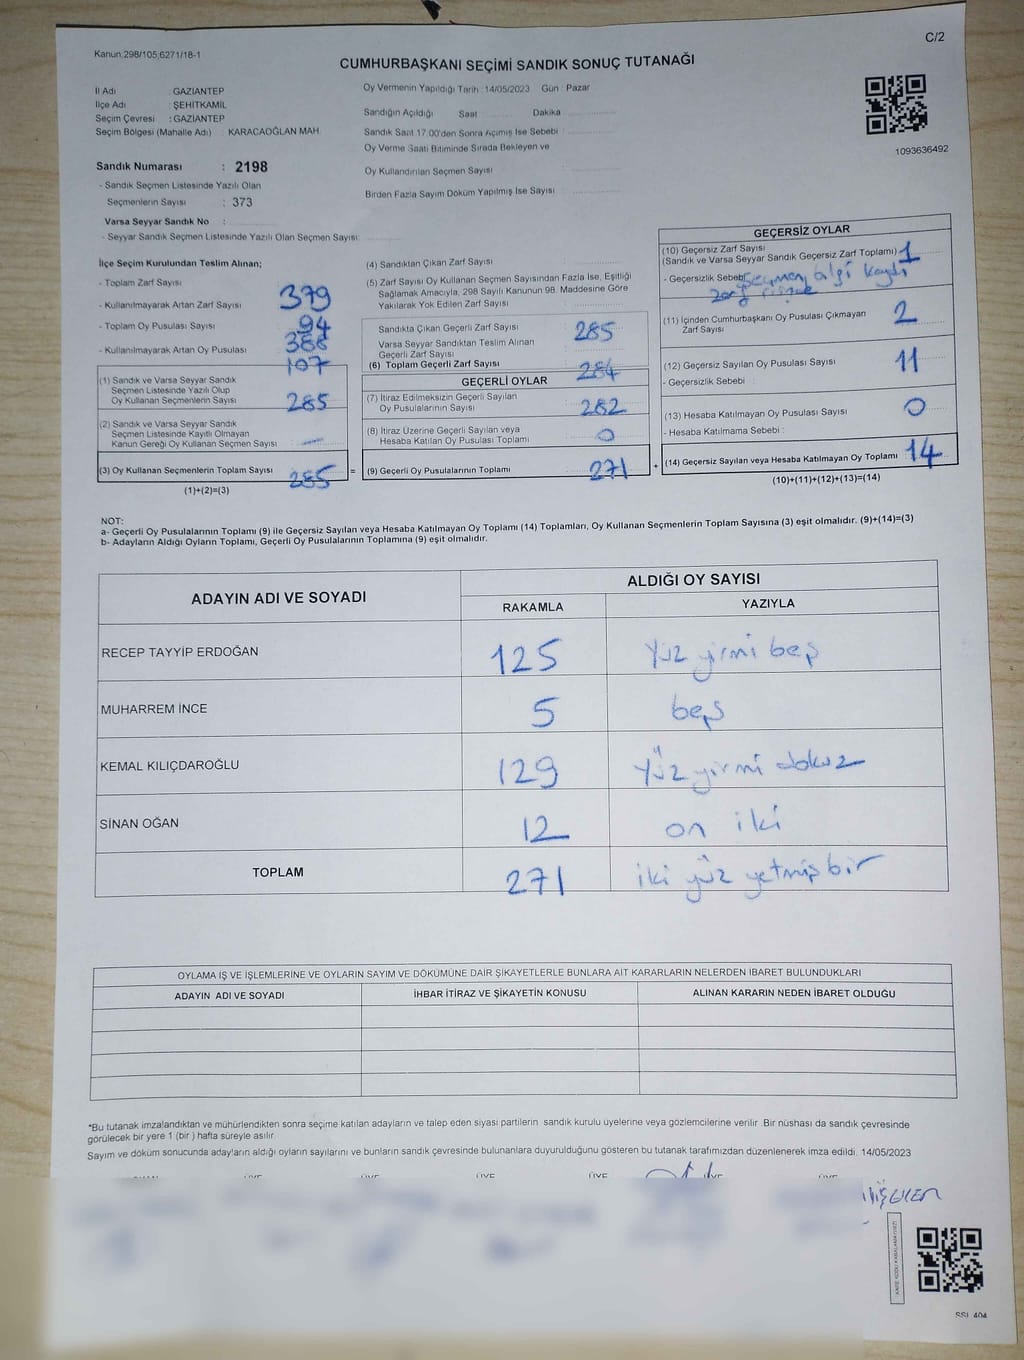 C/2
Kanun:298/105;6271/18-1
CUMHURBAŞKANI SEÇİMİ SANDIK SONUÇ TUTANAĞI
İl Adı : GAZİANTEP
İlçe Adı : ŞEHİTKAMİL
Seçim Çevresi : GAZİANTEP
Seçim Bölgesi (Mahalle Adı) KARACAOĞLAN MAH.
Oy Vermenin Yapıldığı Tarih :14/05/2023 Gün : Pazar
Sandığın Açıldığı Saat Dakika
Sandık Saat 17:00'den Sonra Açımış İse Sebebi :
Oy Verme Saati Bitiminde Sırada Bekleyen ve
Oy Kullandırılan Seçmen Sayısı
Birden Fazla Sayım Döküm Yapılmış İse Sayısı
1093636492
Sandık Numarası : 2198
- Sandık Seçmen Listesinde Yazılı Olan
Seçmenlerin Sayısı : 373
Varsa Seyyar Sandık No :
- Seyyar Sandık Seçmen Listesinde Yazılı Olan Seçmen Sayısı:
İlçe Seçim Kurulundan Teslim Alınan;
- Toplam Zarf Sayısı 379
- Kullanılmayarak Artan Zarf Sayısı 94
- Toplam Oy Pusulası Sayısı 388
- Kullanılmayarak Artan Oy Pusulası 107
(1) Sandık ve Varsa Seyyar Sandık
Seçmen Listesinde Yazılı Olup
Oy Kullanan Seçmenlerin Sayısı 285
(2) Sandık ve Varsa Seyyar Sandık
Seçmen Listesinde Kayıtlı Olmayan
Kanun Gereği Oy Kullanan Seçmen Sayısı —
(3) Oy Kullanan Seçmenlerin Toplam Sayısı 285
(1)+(2)=(3)
(4) Sandıktan Çıkan Zarf Sayısı
(5) Zarf Sayısı Oy Kullanan Seçmen Sayısından Fazla İse, Eşitliği
Sağlamak Amacıyla, 298 Sayılı Kanunun 98. Maddesine Göre
Yakılarak Yok Edilen Zarf Sayısı :
Sandıkta Çıkan Geçerli Zarf Sayısı 285
Varsa Seyyar Sandıktan Teslim Alınan
Geçerli Zarf Sayısı
(6) Toplam Geçerli Zarf Sayısı 284
GEÇERLİ OYLAR
(7) İtiraz Edilmeksizin Geçerli Sayılan
Oy Pusulalarının Sayısı 282
(8) İtiraz Üzerine Geçerli Sayılan veya
Hesaba Katılan Oy Pusulaları Toplamı 0
= (9) Geçerli Oy Pusulalarının Toplamı 271
GEÇERSİZ OYLAR
(10) Geçersiz Zarf Sayısı
(Sandık ve Varsa Seyyar Sandık Geçersiz Zarf Toplamı) 1
- Geçersizlik Sebebi Seçmen bilgi kaydı
zarf
(11) İçinden Cumhurbaşkanı Oy Pusulası Çıkmayan
Zarf Sayısı 2
(12) Geçersiz Sayılan Oy Pusulası Sayısı 11
- Geçersizlik Sebebi :
(13) Hesaba Katılmayan Oy Pusulası Sayısı 0
- Hesaba Katılmama Sebebi :
+ (14) Geçersiz Sayılan veya Hesaba Katılmayan Oy Toplamı 14
(10)+(11)+(12)+(13)=(14)
NOT:
a- Geçerli Oy Pusulalarının Toplamı (9) ile Geçersiz Sayılan veya Hesaba Katılmayan Oy Toplamı (14) Toplamları, Oy Kullanan Seçmenlerin Toplam Sayısına (3) eşit olmalıdır. (9)+(14)=(3)
b- Adayların Aldığı Oyların Toplamı, Geçerli Oy Pusulalarının Toplamına (9) eşit olmalıdır.
ADAYIN ADI VE SOYADI
ALDIĞI OY SAYISI
RAKAMLA YAZIYLA
RECEP TAYYİP ERDOĞAN 125 Yüz yirmi beş
MUHARREM İNCE 5 beş
KEMAL KILIÇDAROĞLU 129 yüz yirmi dokuz
SİNAN OĞAN 12 on iki
TOPLAM 271 iki yüz yetmiş bir
OYLAMA İŞ VE İŞLEMLERİNE VE OYLARIN SAYIM VE DÖKÜMÜNE DAİR ŞİKAYETLERLE BUNLARA AİT KARARLARIN NELERDEN İBARET BULUNDUKLARI
ADAYIN ADI VE SOYADI İHBAR İTİRAZ VE ŞİKAYETİN KONUSU ALINAN KARARIN NEDEN İBARET OLDUĞU
*Bu tutanak imzalandıktan ve mühürlendikten sonra seçime katılan adayların ve talep eden siyasi partilerin sandık kurulu üyelerine veya gözlemcilerine verilir .Bir nüshası da sandık çevresinde
görülecek bir yere 1 (bir ) hafta süreyle asılır.
Sayım ve döküm sonucunda adayların aldığı oyların sayılarını ve bunların sandık çevresinde bulunanlara duyurulduğunu gösteren bu tutanak tarafımızdan düzenlenerek imza edildi. 14/05/2023
ÜYE ÜYE ÜYE ÜYE ÜYE ÜYE